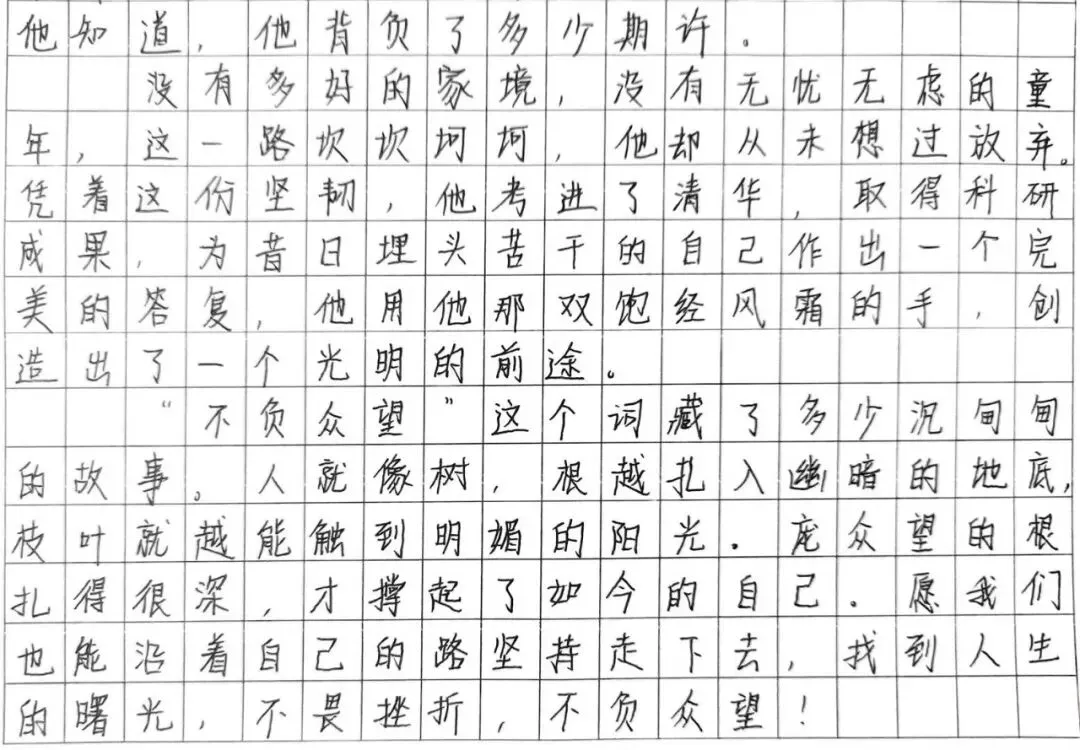 他知道，他背负了多少期许。
没有多好的家境，没有无忧无虑的童
年，这一路坎坎坷坷，他却从未想过放弃。
凭着这份坚韧，他考进了清华，取得科研
成果，为昔日埋头苦干的自己作出一个完
美的答复，他用他那双饱经风霜的手，创
造出了一个光明的前途。
“不负众望”这个词藏了多少沉甸甸
的故事。人就像树，根越扎入幽暗的地底，
枝叶就越能触到明媚的阳光。庞众望的根
扎得很深，才撑起了如今的自己。愿我们
也能沿着自己的路坚持走下去，找到人生
的曙光，不畏挫折，不负众望！